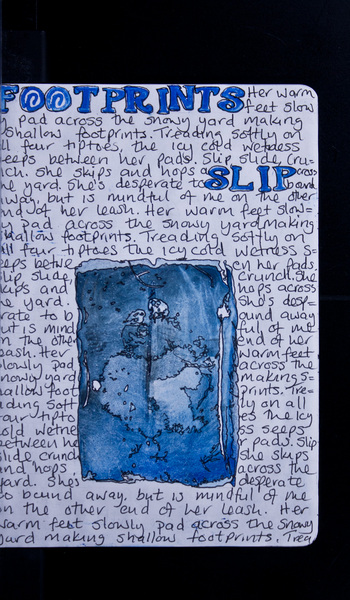 FOOTPRINTS Her warm
feet slow
pad across the snowy yard making
shallow footprints. Treading softly on
ll four tiptoes, the icy cold wetness
eeps between her pads. Slip slide, cru=
ch. She skips and hops across
SLIP
he yard. She's desperate to bound
way, but is mindful of me on the other
nd of her leash. Her warm feet slow=
y pad across the snowy yard making
hallow footprints. Treading softly on
ll four tiptoes the icy cold wetness s-
eeps betwe en her pads.
lip slide crunch. She
kips and hops across
he yard. She's desp=
rate to b ound away
ut is mind ful of me
n the other end of her
eash. Her warm feet
lowly pad across the
nowy yard making s=
hallow foot prints. Trea=
ding soft ly on all
our tipto es the icy
old wetne ss seeps
etween he r pads. Slip
lide crunch she skips
and hops across the
ard. She's desperate
o bound away, but is mindful of me
n the other end of her leash. Her
warm feet slowly pad across the snowy
yard making shallow footprints. Trea